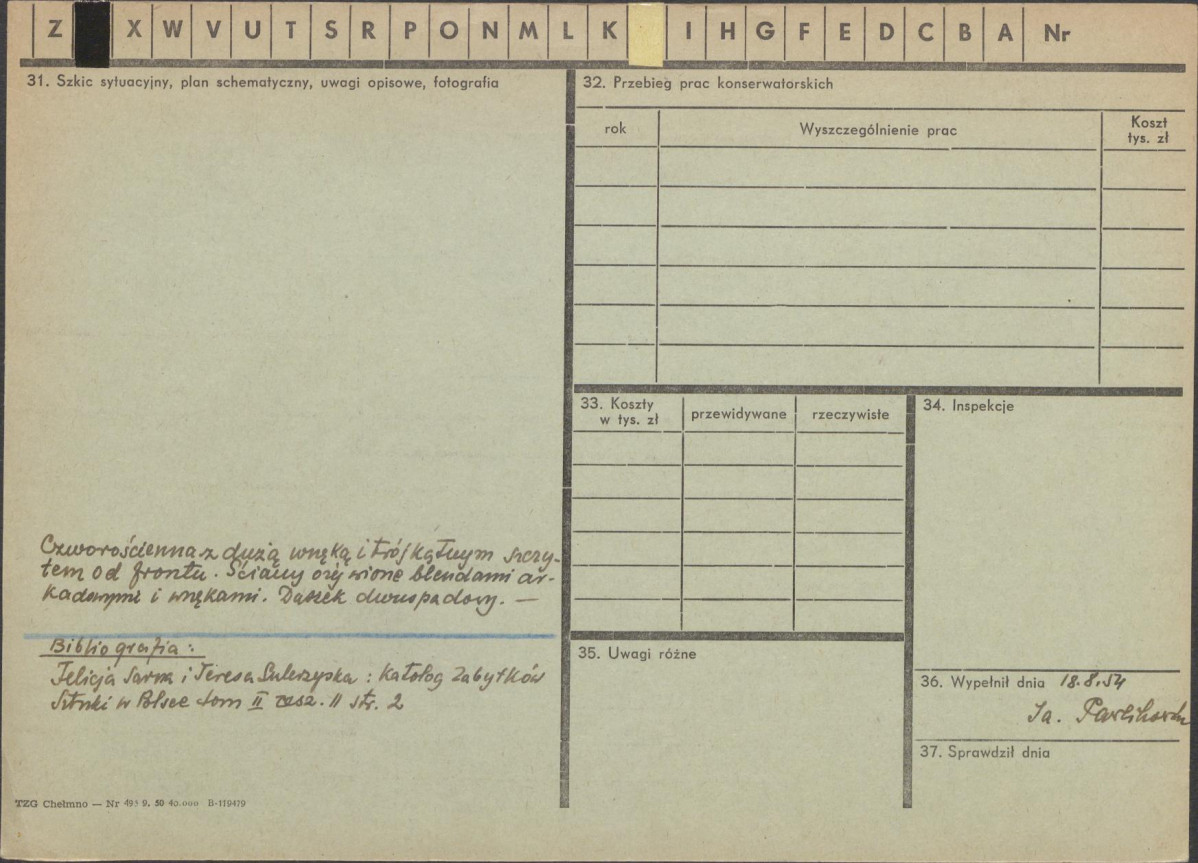 Z X W V U T S R P O N M L K I H G F E D C B A Nr
31. Szkic sytuacyjny, plan schematyczny, uwagi opisowe, fotografia
Czworościenna z dużą wnęką i trójkątnym szczy-
tem od frontu. Ściany ożywione blendami ar-
kadowymi i wnękami. Daszek dwuspadowy. —
Bibliografia:
Felicja Sarna i Teresa Sulerzyska: Katalog Zabytków
Sztuki w Polsce tom II zesz. 11 str. 2
TZG Chełmno — Nr 493 9. 50 40.000 B-119479
32. Przebieg prac konserwatorskich
rok Wyszczególnienie prac Koszt
tys. zł
33. Koszty
w tys. zł przewidywane rzeczywiste
34. Inspekcje
35. Uwagi różne
36. Wypełnił dnia 18.8.54
37. Sprawdził dnia